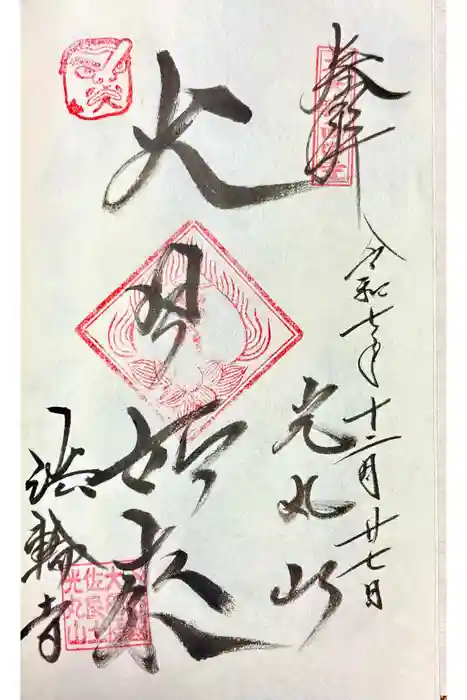 奉拝
令和七年十二月廿七日
光丸山
大日如来
法輪寺
佐良土
光丸山